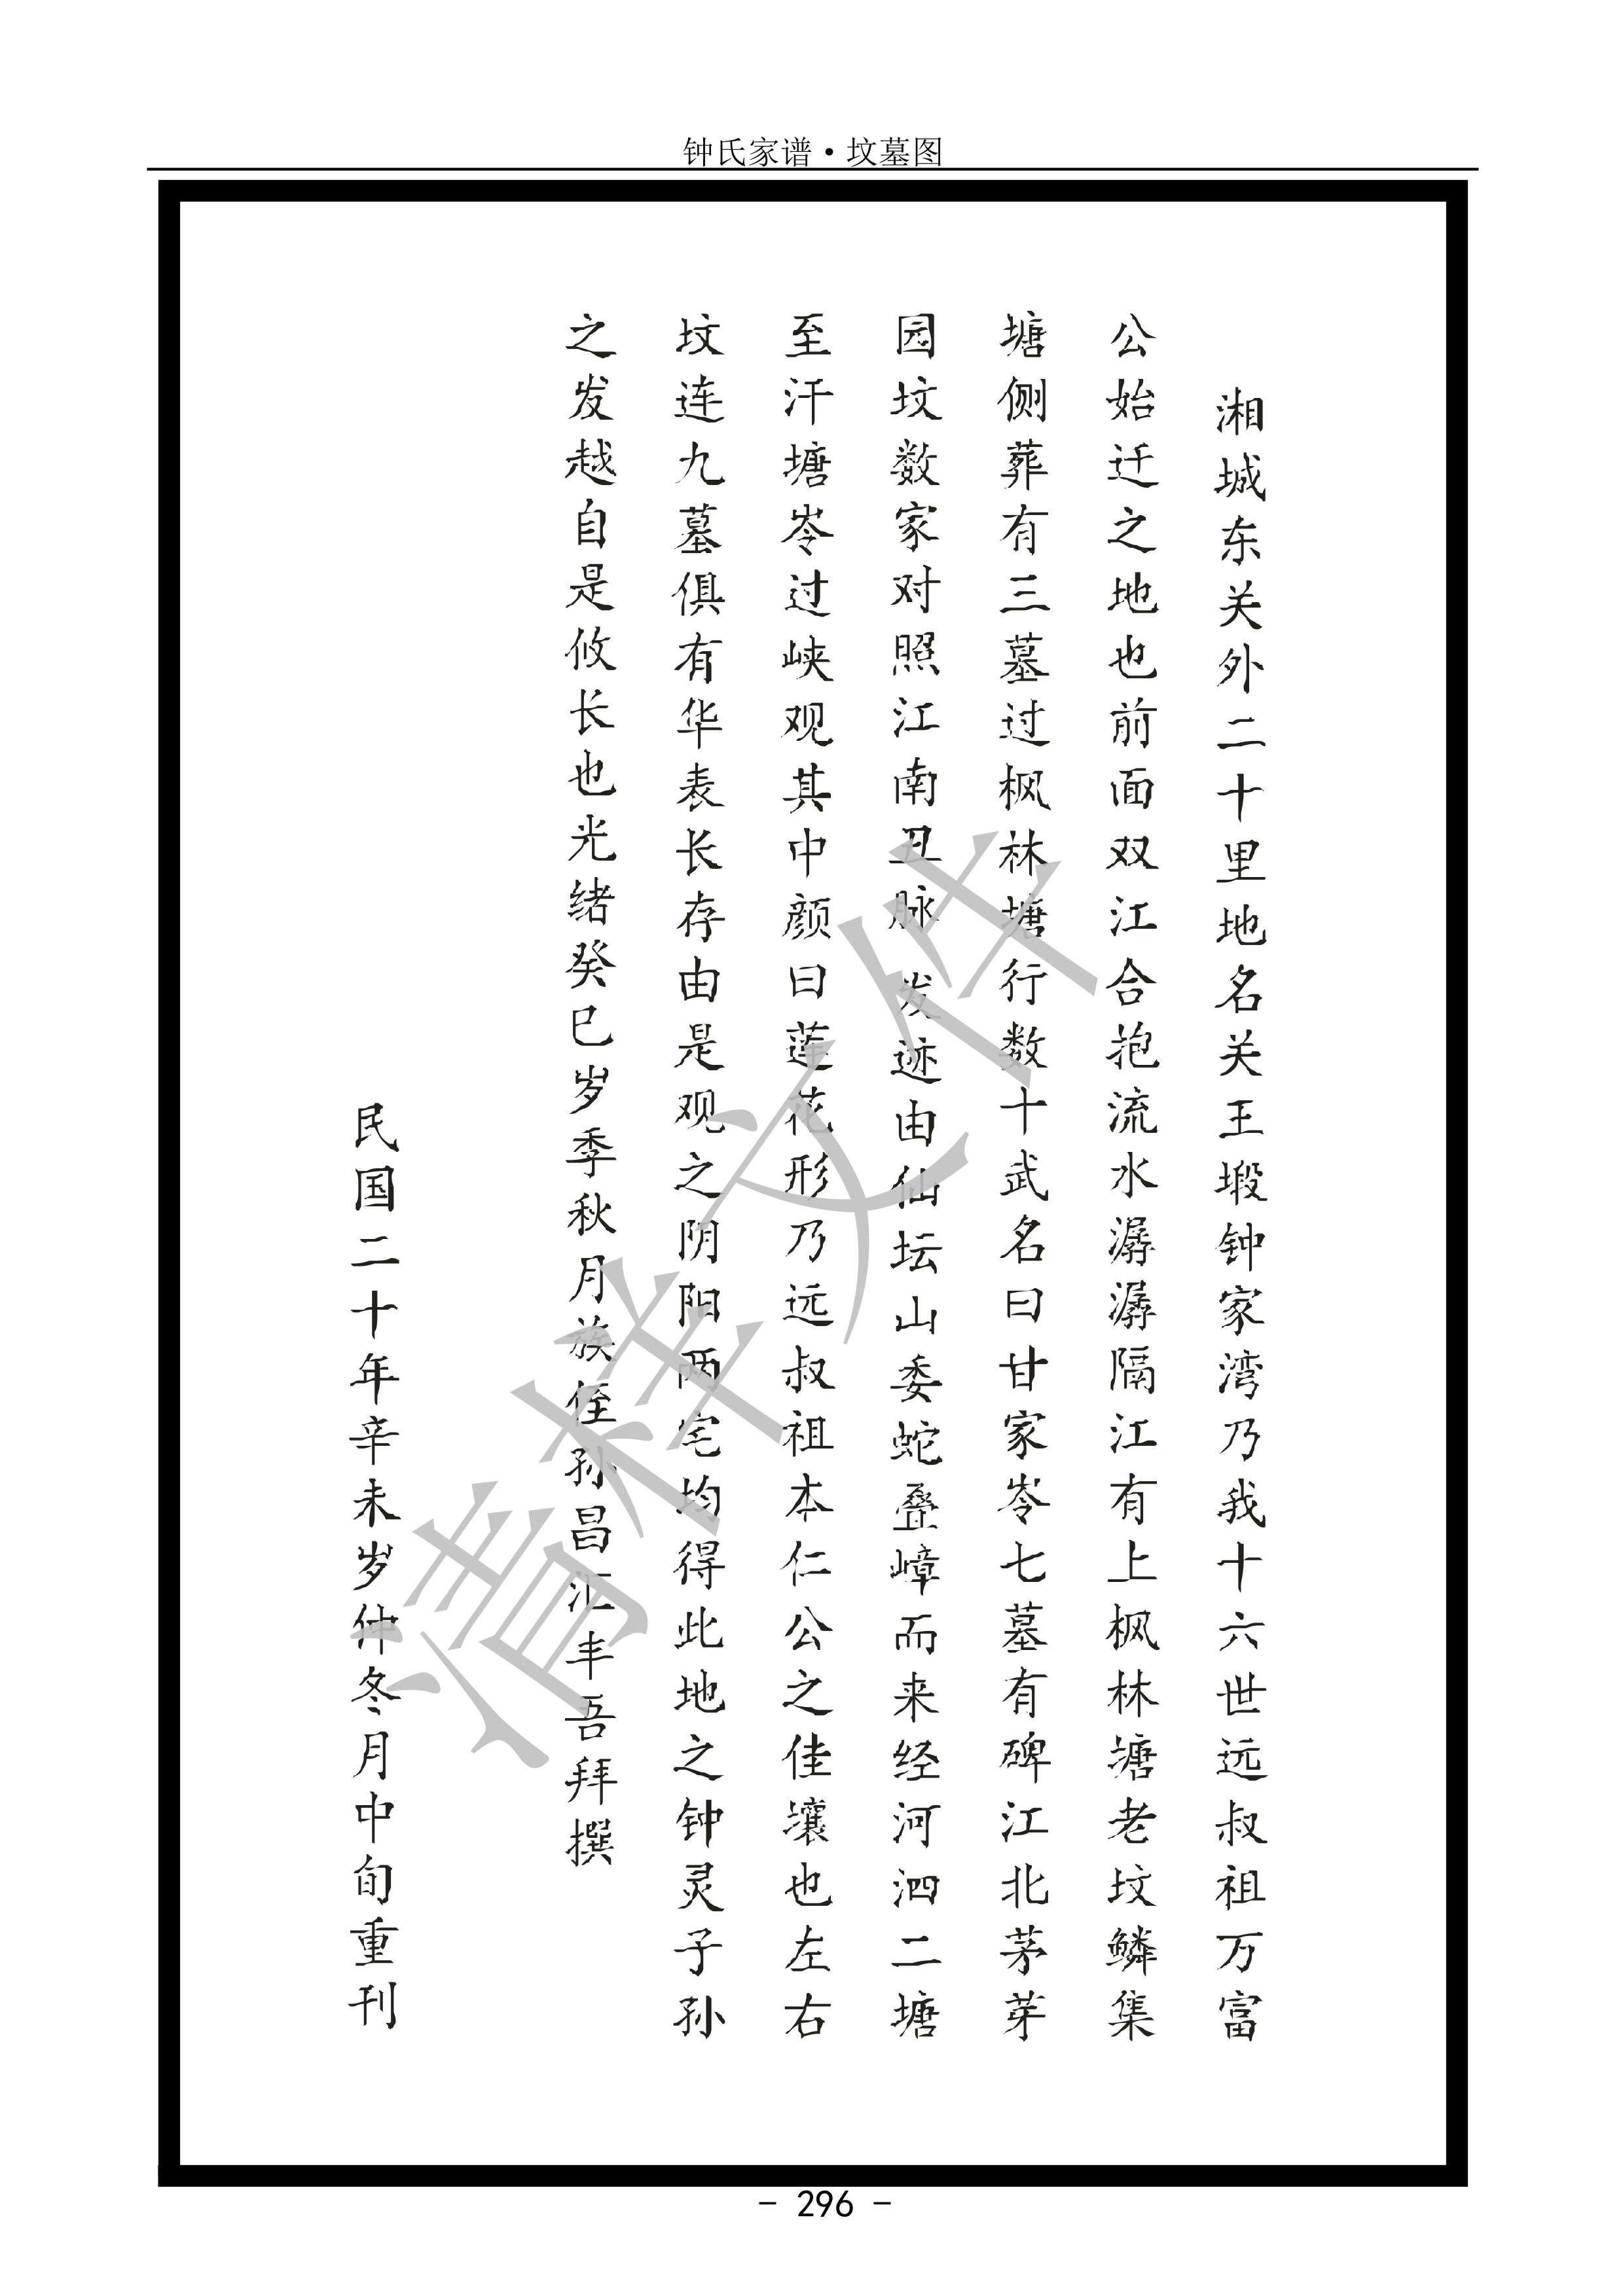 钟氏家谱·坟墓图
湘城东关外二十里地名关王塅钟家湾乃我十六世远叔祖万富
公始迁之地也前面双江合抱流水潺潺隔江有上枫林塘老坟鳞集
塘侧葬有三墓过枫林塘行数十武名曰甘家岺七墓有碑江北茅芽
园坟数家对照江南丑脉发迹由仙坛山委蛇叠嶂而来经河泗二塘
至汗塘岺过峡观其中颜曰莲花形乃远叔祖本仁公之佳壤也左右
坟连九墓俱有华表长存由是观之阴阳两宅均得此地之钟灵子孙
之发越自是攸长也光绪癸巳岁季秋月族侄孙昌汇丰吾拜撰
民国二十年辛未岁仲冬月中旬重刊
清样文件
- 296 -